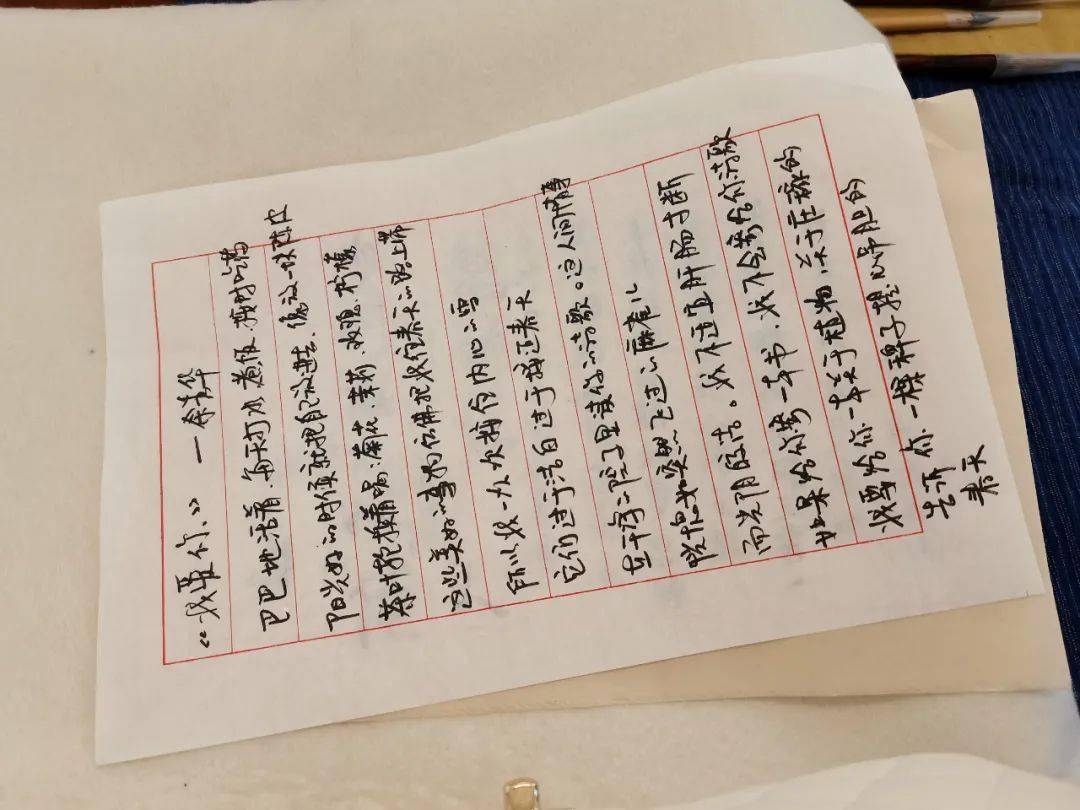 《我爱你》 — 余秀华
巴巴地活着,每天打水,煮饭,按时吃药
阳光好的时候就把自己放进去,像放一块陈皮
茶叶轮换着喝:菊花,茉莉,玫瑰,柠檬
这些美好的事物仿佛把我往春天的路上带
所以我一次次按住内心的雪
它们过于洁白过于接近春天
在干净的院子里读你的诗歌。这人间情事
恍惚如突然飞过的麻雀儿
而光阴皎洁。我不适宜肝肠寸断
如果给你寄一本书,我不会寄给你诗歌
我要给你一本关于植物,关于庄稼的
告诉你一棵稗子提心吊胆的
春天